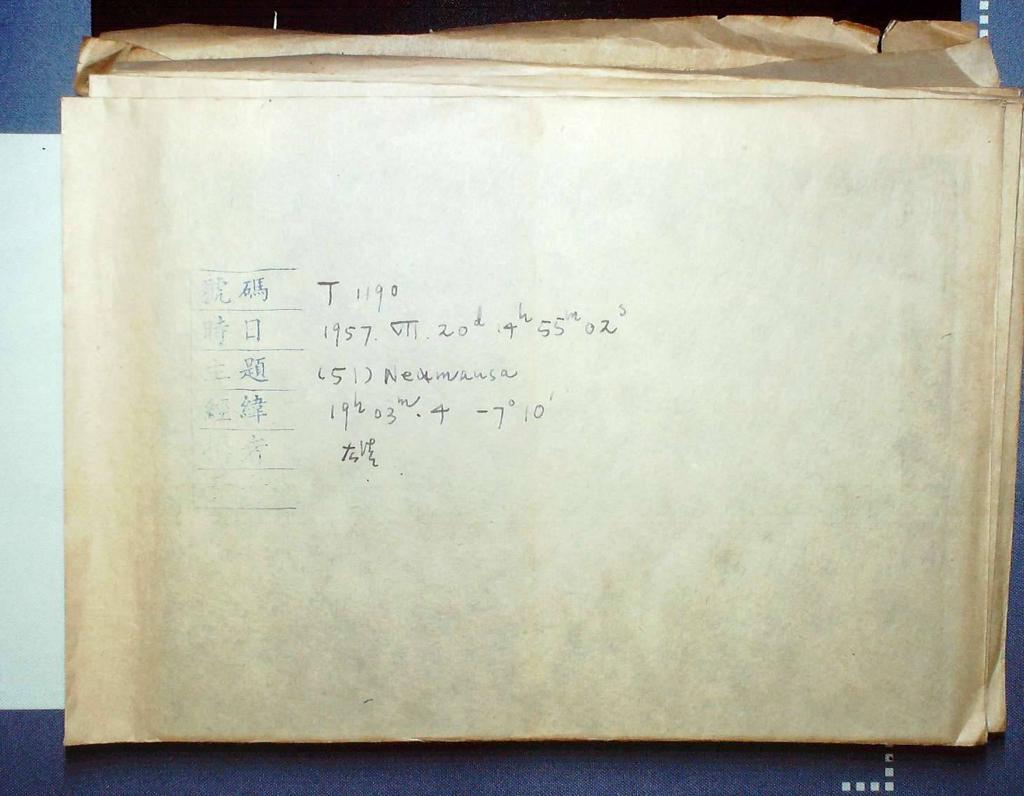 號碼 T 1190
時日 1957. VII. 20ᵈ 14ʰ 55ᵐ 02ˢ
主題 (51) Nemausa
經緯 19ʰ 03ᵐ.4 -7° 10'
備考